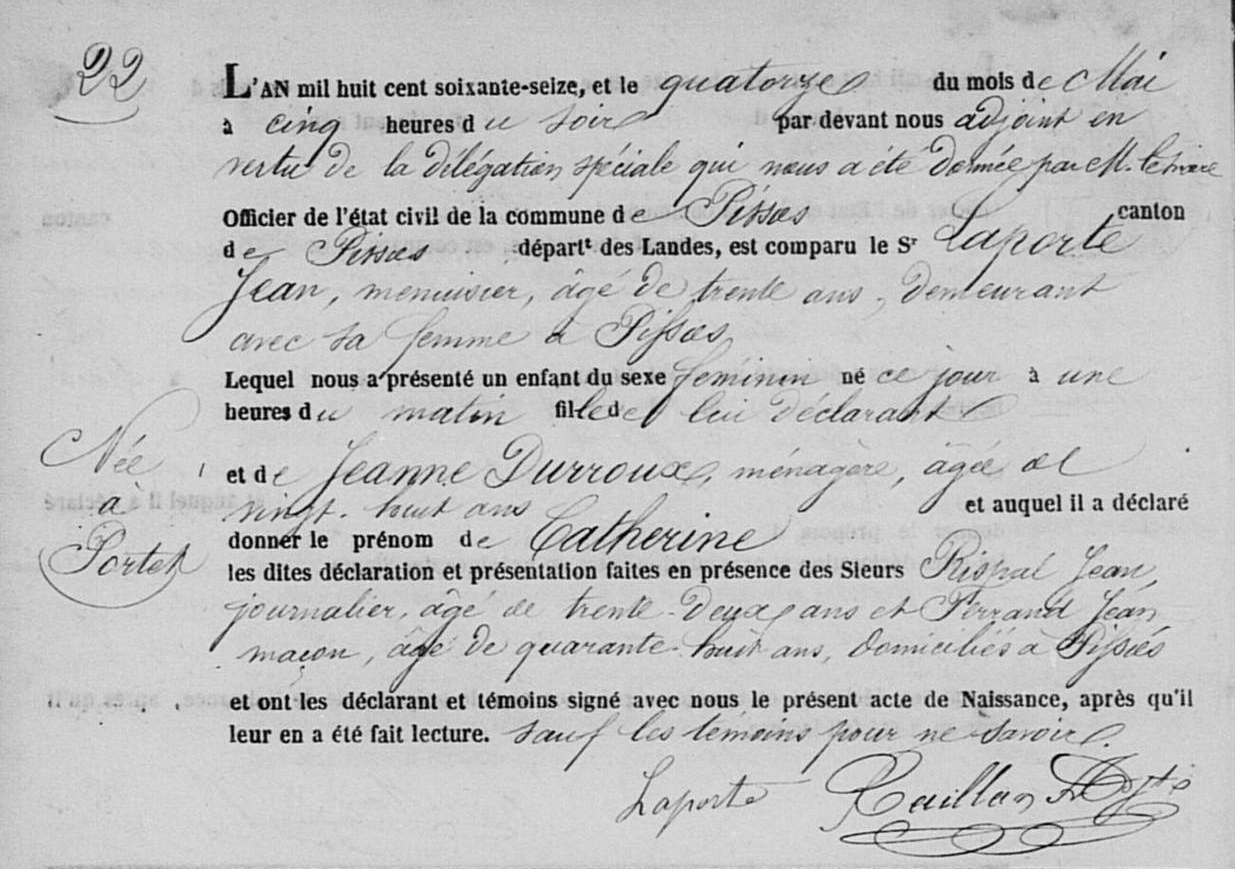 22
L'AN mil huit cent soixante-seize, et le quatorze du mois de Mai
à cinq heures du soir par devant nous adjoint en
vertu de la délégation spéciale qui nous a été donnée par M. le maire
Officier de l'état civil de la commune de Pissos canton
de Pissos départt des Landes, est comparu le Sr Laporte
Jean, menuisier, âgé de trente ans, demeurant
avec sa femme à Pissos
Lequel nous a présenté un enfant du sexe féminin né ce jour à une
heures du matin fille de lui déclarant
Née
à
Portet
et de Jeanne Durroux, ménagère, âgée de
vingt-huit ans et auquel il a déclaré
donner le prénom de Catherine
les dites déclaration et présentation faites en présence des Sieurs Rispal Jean,
journalier, âgé de trente-deux ans et Ferrand Jean
maçon, âgé de quarante-huit ans, domiciliés à Pissos
et ont les déclarant et témoins signé avec nous le présent acte de Naissance, après qu'il
leur en a été fait lecture. sauf les témoins pour ne savoir.
Laporte